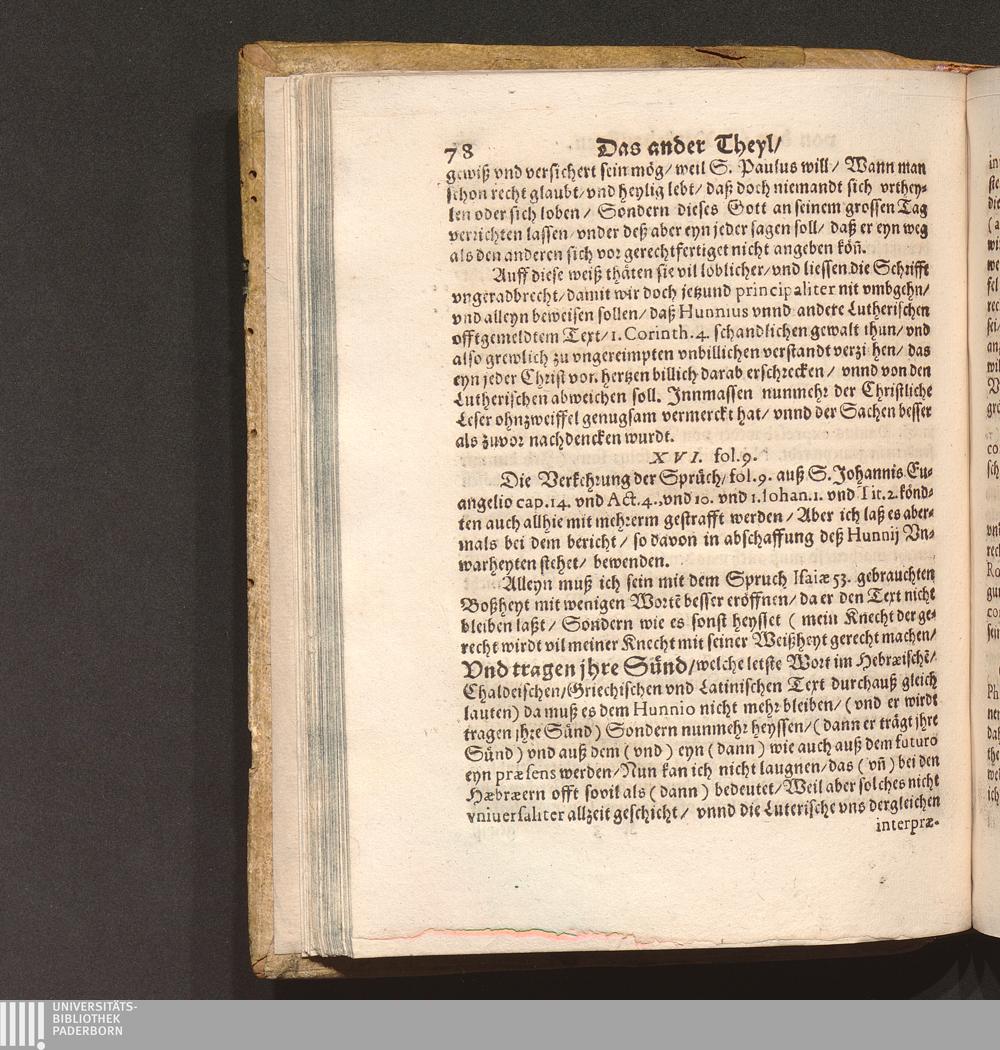 78 Das ander Theyl/
gewiß vnd versichert sein mög/ weil S. Paulus will/ Wann man
schon recht glaubt/ vnd heylig lebt/ daß doch niemandt sich vrthey-
len oder sich loben/ Sondern dieses Gott an seinem grossen Tag
verrichten lassen/ vnder deß aber eyn jeder sagen soll/ daß er eyn weg
als den anderen sich vor gerechtfertiget nicht angeben köñ.
Auff diese weiß thäten sie vil löblicher/ vnd liessen die Schrifft
vngeradbrecht/ damit wir doch jetzund principaliter nit vmbgehn/
vnd alleyn beweisen sollen/ daß Hunnius vnnd andere Lutherischen
offtgemeldtem Text/ 1. Corinth. 4. schandlichen gewalt thun/ vnd
also grewlich zu vngereimpten vnbillichen verstandt verzihen/ das
eyn jeder Christ von hertzen billich darab erschrecken/ vnnd von den
Lutherischen abweichen soll. Innmassen nunmehr der Christliche
Leser ohnzweiffel genugsam vermerckt hat/ vnnd der Sachen besser
als zuvor nachdencken wurdt.
XVI. fol. 9.
Die Verkehrung der Sprüch/ fol. 9. auß S. Johannis Eu-
angelio cap. 14. vnd Act. 4., vnd 10. vnd 1. Iohan. 1. vnd Tit. 2. könd-
ten auch allhie mit mehrerm gestrafft werden/ Aber ich laß es aber-
mals bei dem bericht/ so davon in abschaffung deß Hunnij Vn-
warheyten stehet/ bewenden.
Alleyn muß ich sein mit dem Spruch Isaiæ 53. gebrauchten
Boßheyt mit wenigen Wortē besser eröffnen/ da er den Text nicht
bleiben laßt/ Sondern wie es sonst heysset (mein Knecht der ge-
recht wirdt vil meiner Knecht mit seiner Weißheyt gerecht machen/
Vnd tragen jhre Sünd/ welche letste Wort im Hebræischē/
Chaldeischen/ Griechischen vnd Latinischen Text durchauß gleich
lauten) da muß es dem Hunnio nicht mehr bleiben/ (vnd er wirdt
tragen jhre Sünd) Sondern nunmehr heyssen/ (dann er trägt jhre
Sünd) vnd auß dem (vnd) eyn (dann) wie auch auß dem futuro
eyn præsens werden/ Nun kan ich nicht laugnen/ das (vñ) bei den
Hæbræern offt sovil als (dann) bedeutet/ Weil aber solches nicht
vniuersaliter allzeit geschicht/ vnnd die Luterische vns dergleichen
interpræ-
UNIVERSITÄTS-
BIBLIOTHEK
PADERBORN